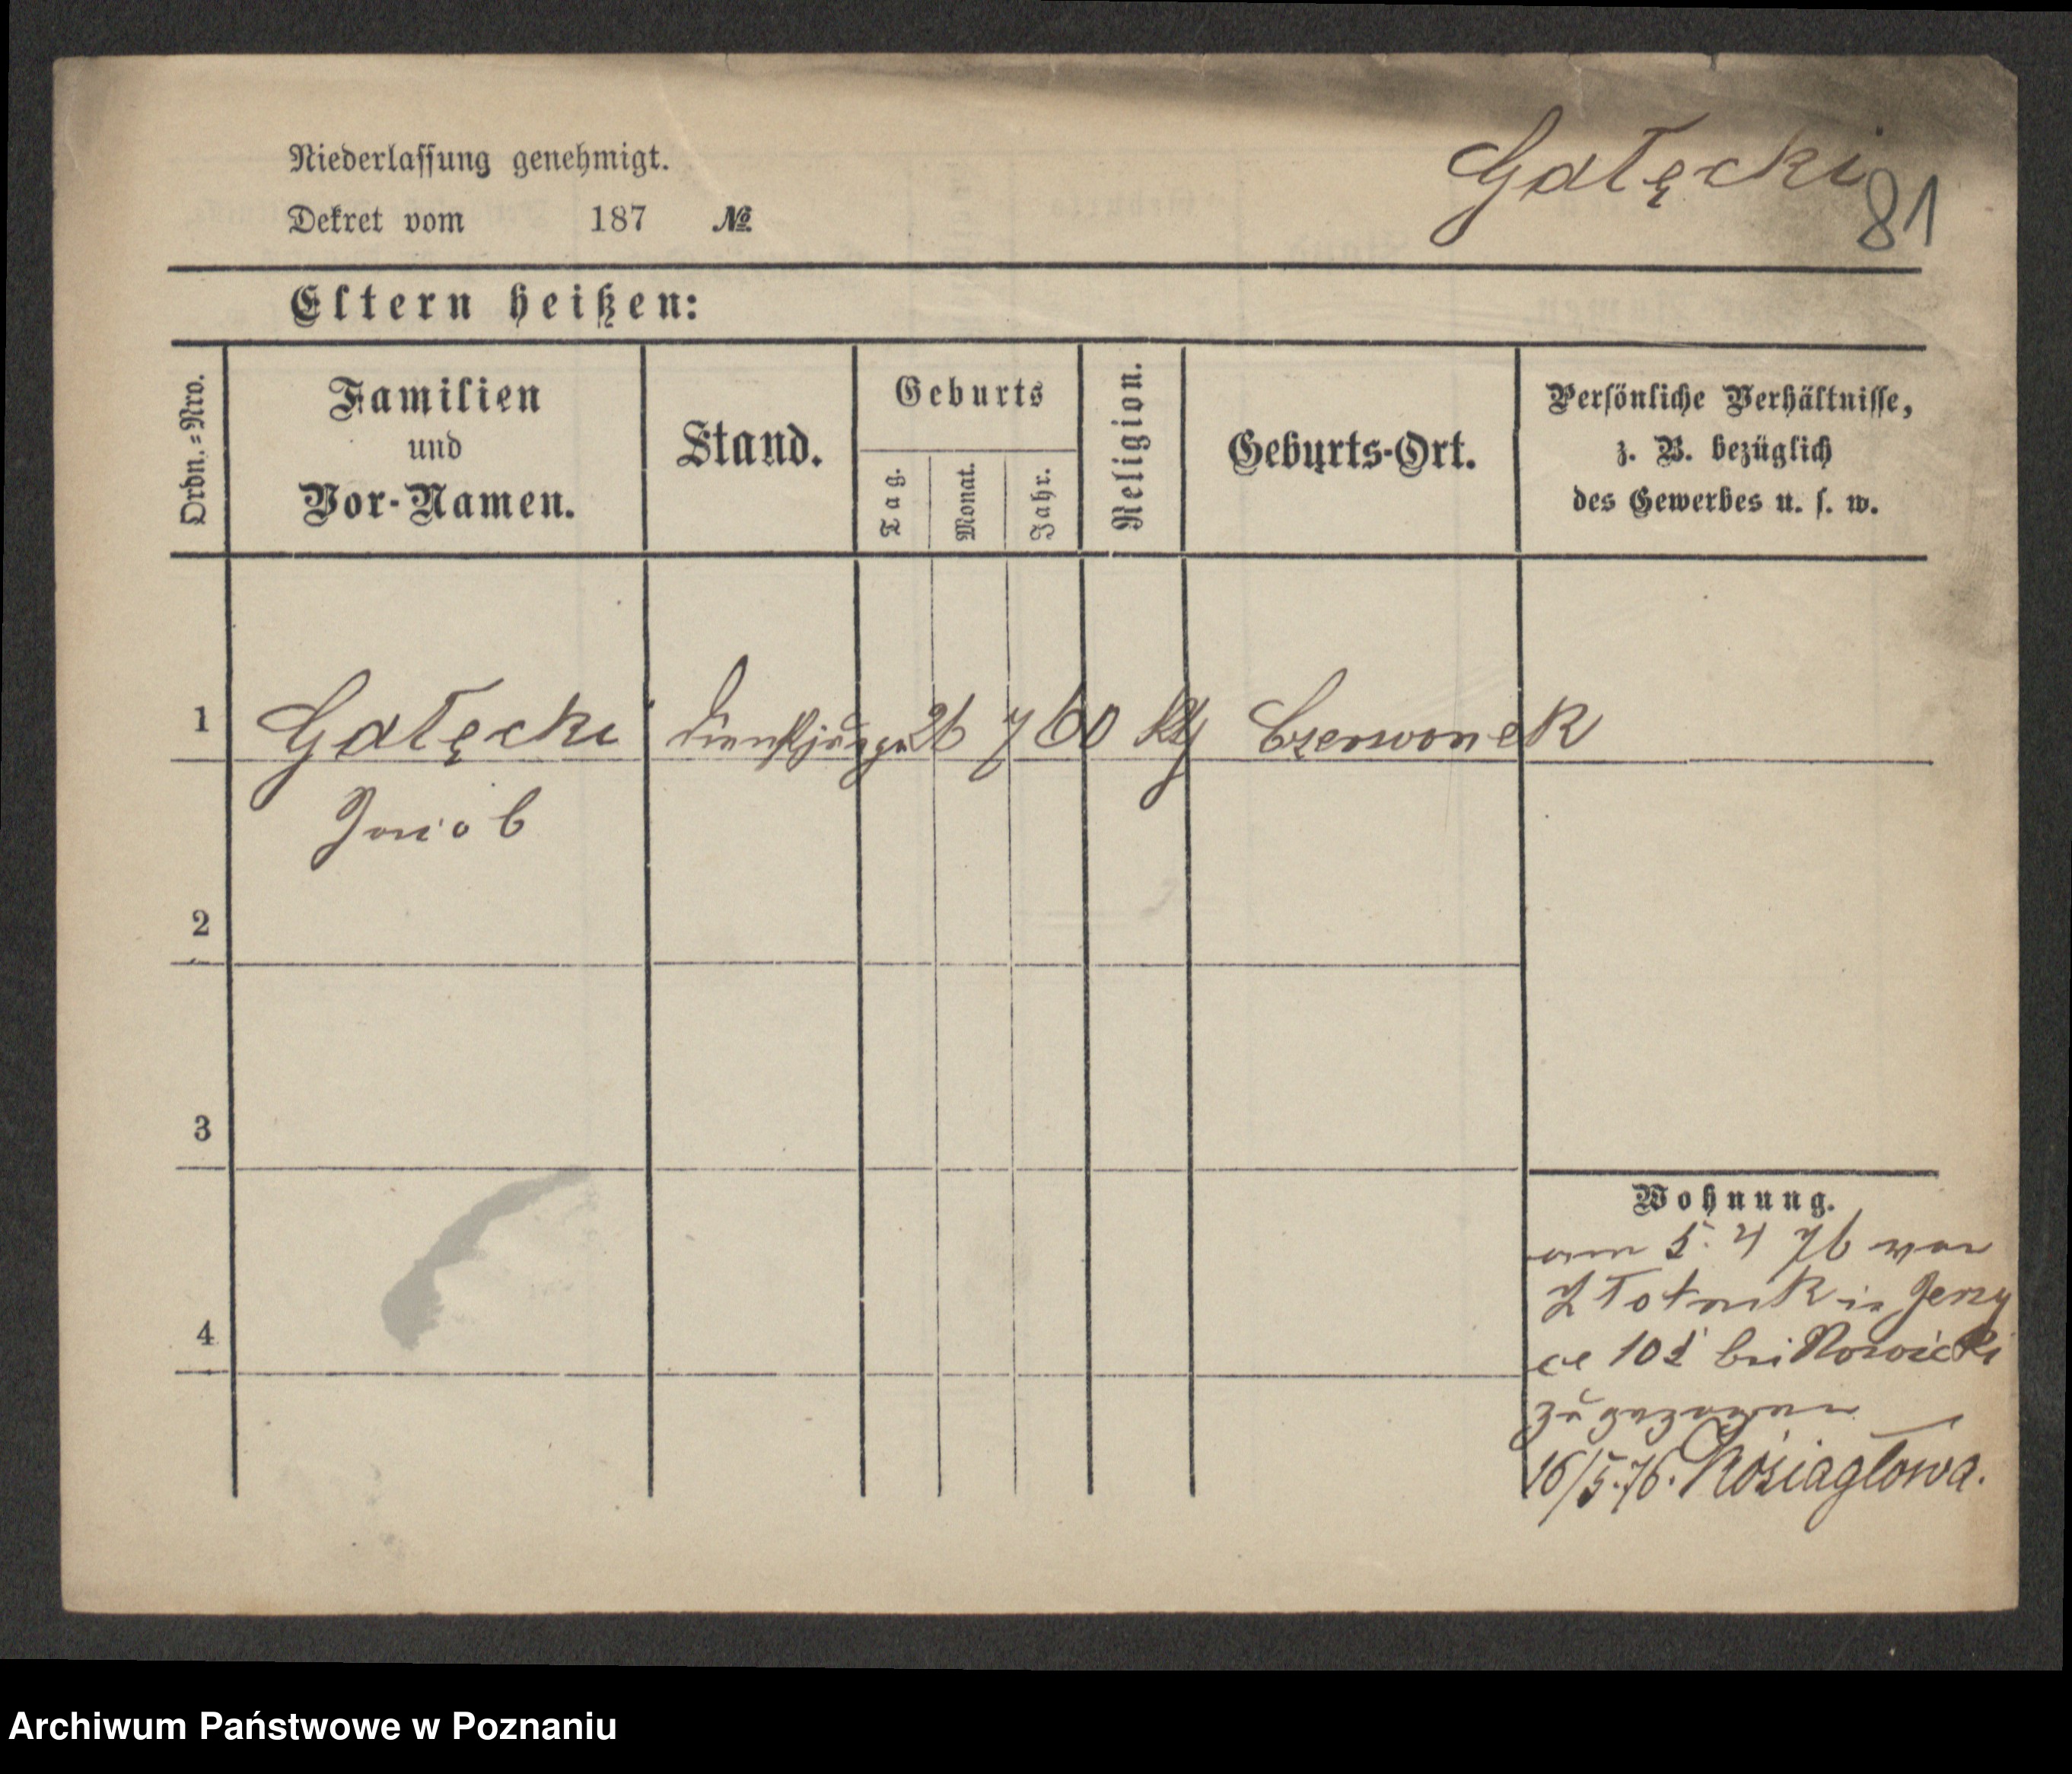 Niederlassung genehmigt.
Dekret vom 187 №
Gałęcki
81
Eltern heißen:
Ordn.=Nro.
Familien
und
Vor-Namen.
Stand.
Geburts
Tag.
Monat.
Jahr.
Religion.
Geburts-Ort.
Persönliche Verhältnisse,
z. B. bezüglich
des Gewerbes u. s. w.
1 Gałęcki Dienstjunge 26 7 60 ktj Czerwonek
Jacob
2
3
4
Wohnung.
am 5. 4 76 von
Złotnik in Jerzy
ce 105 bei Nowicki
zugezogen
16/5.76. Kósiagłowa.
Archiwum Państwowe w Poznaniu